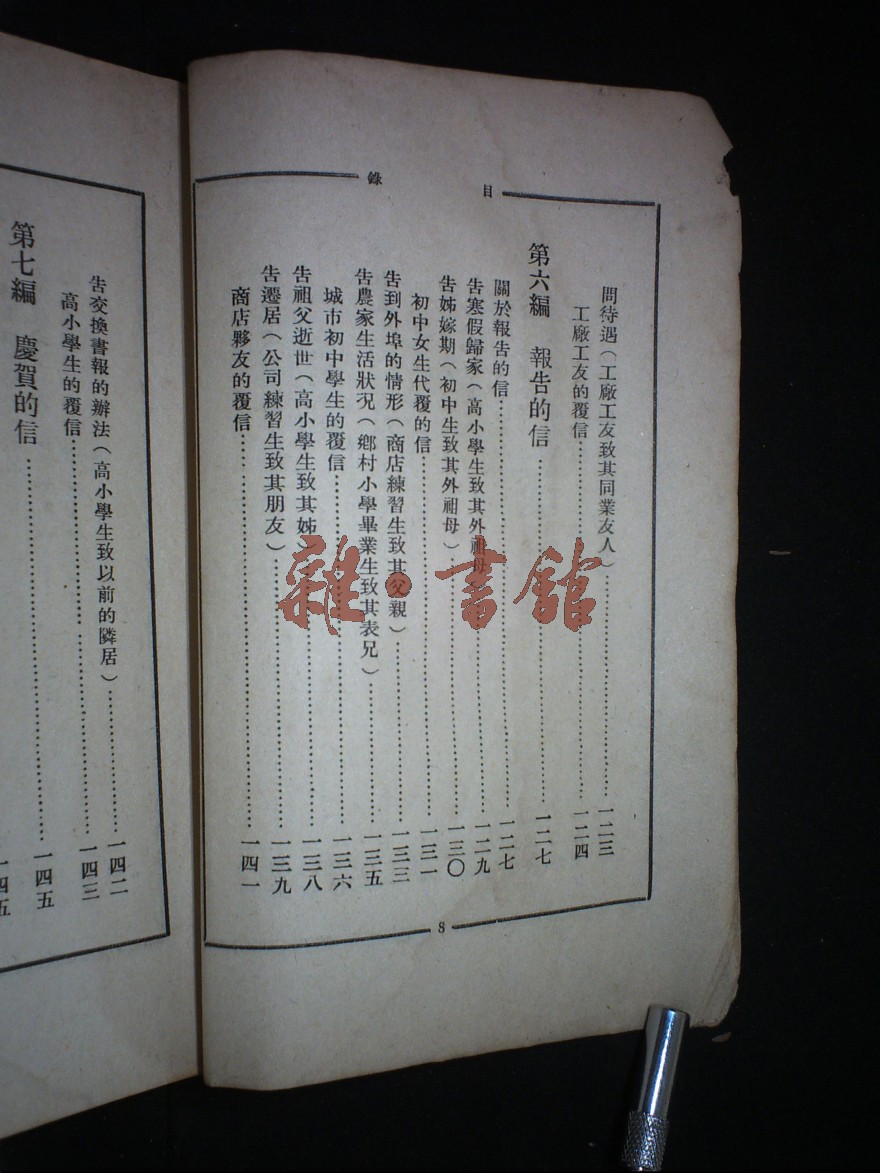 目錄
問待遇(工廠工友致其同業友人)……一二三
工廠工友的覆信……一二四
第六編　報告的信……一二七
關於報告的信……一二七
告寒假歸家(高小學生致其外祖母)……一二九
告姊嫁期(初中生致其外祖母)……一三〇
初中女生代覆的信……一三一
告到外埠的情形(商店練習生致其父親)……一三三
告農家生活狀況(鄉村小學畢業生致其表兄)……一三五
城市初中學生的覆信……一三六
告祖父逝世(高小學生致其姊)……一三八
告遷居(公司練習生致其朋友)……一三九
商店夥友的覆信……一四一
8
告交換書報的辦法(高小學生致以前的隣居)……一四二
高小學生的覆信……一四三
第七編　慶賀的信……一四五
一四五
雜·書館